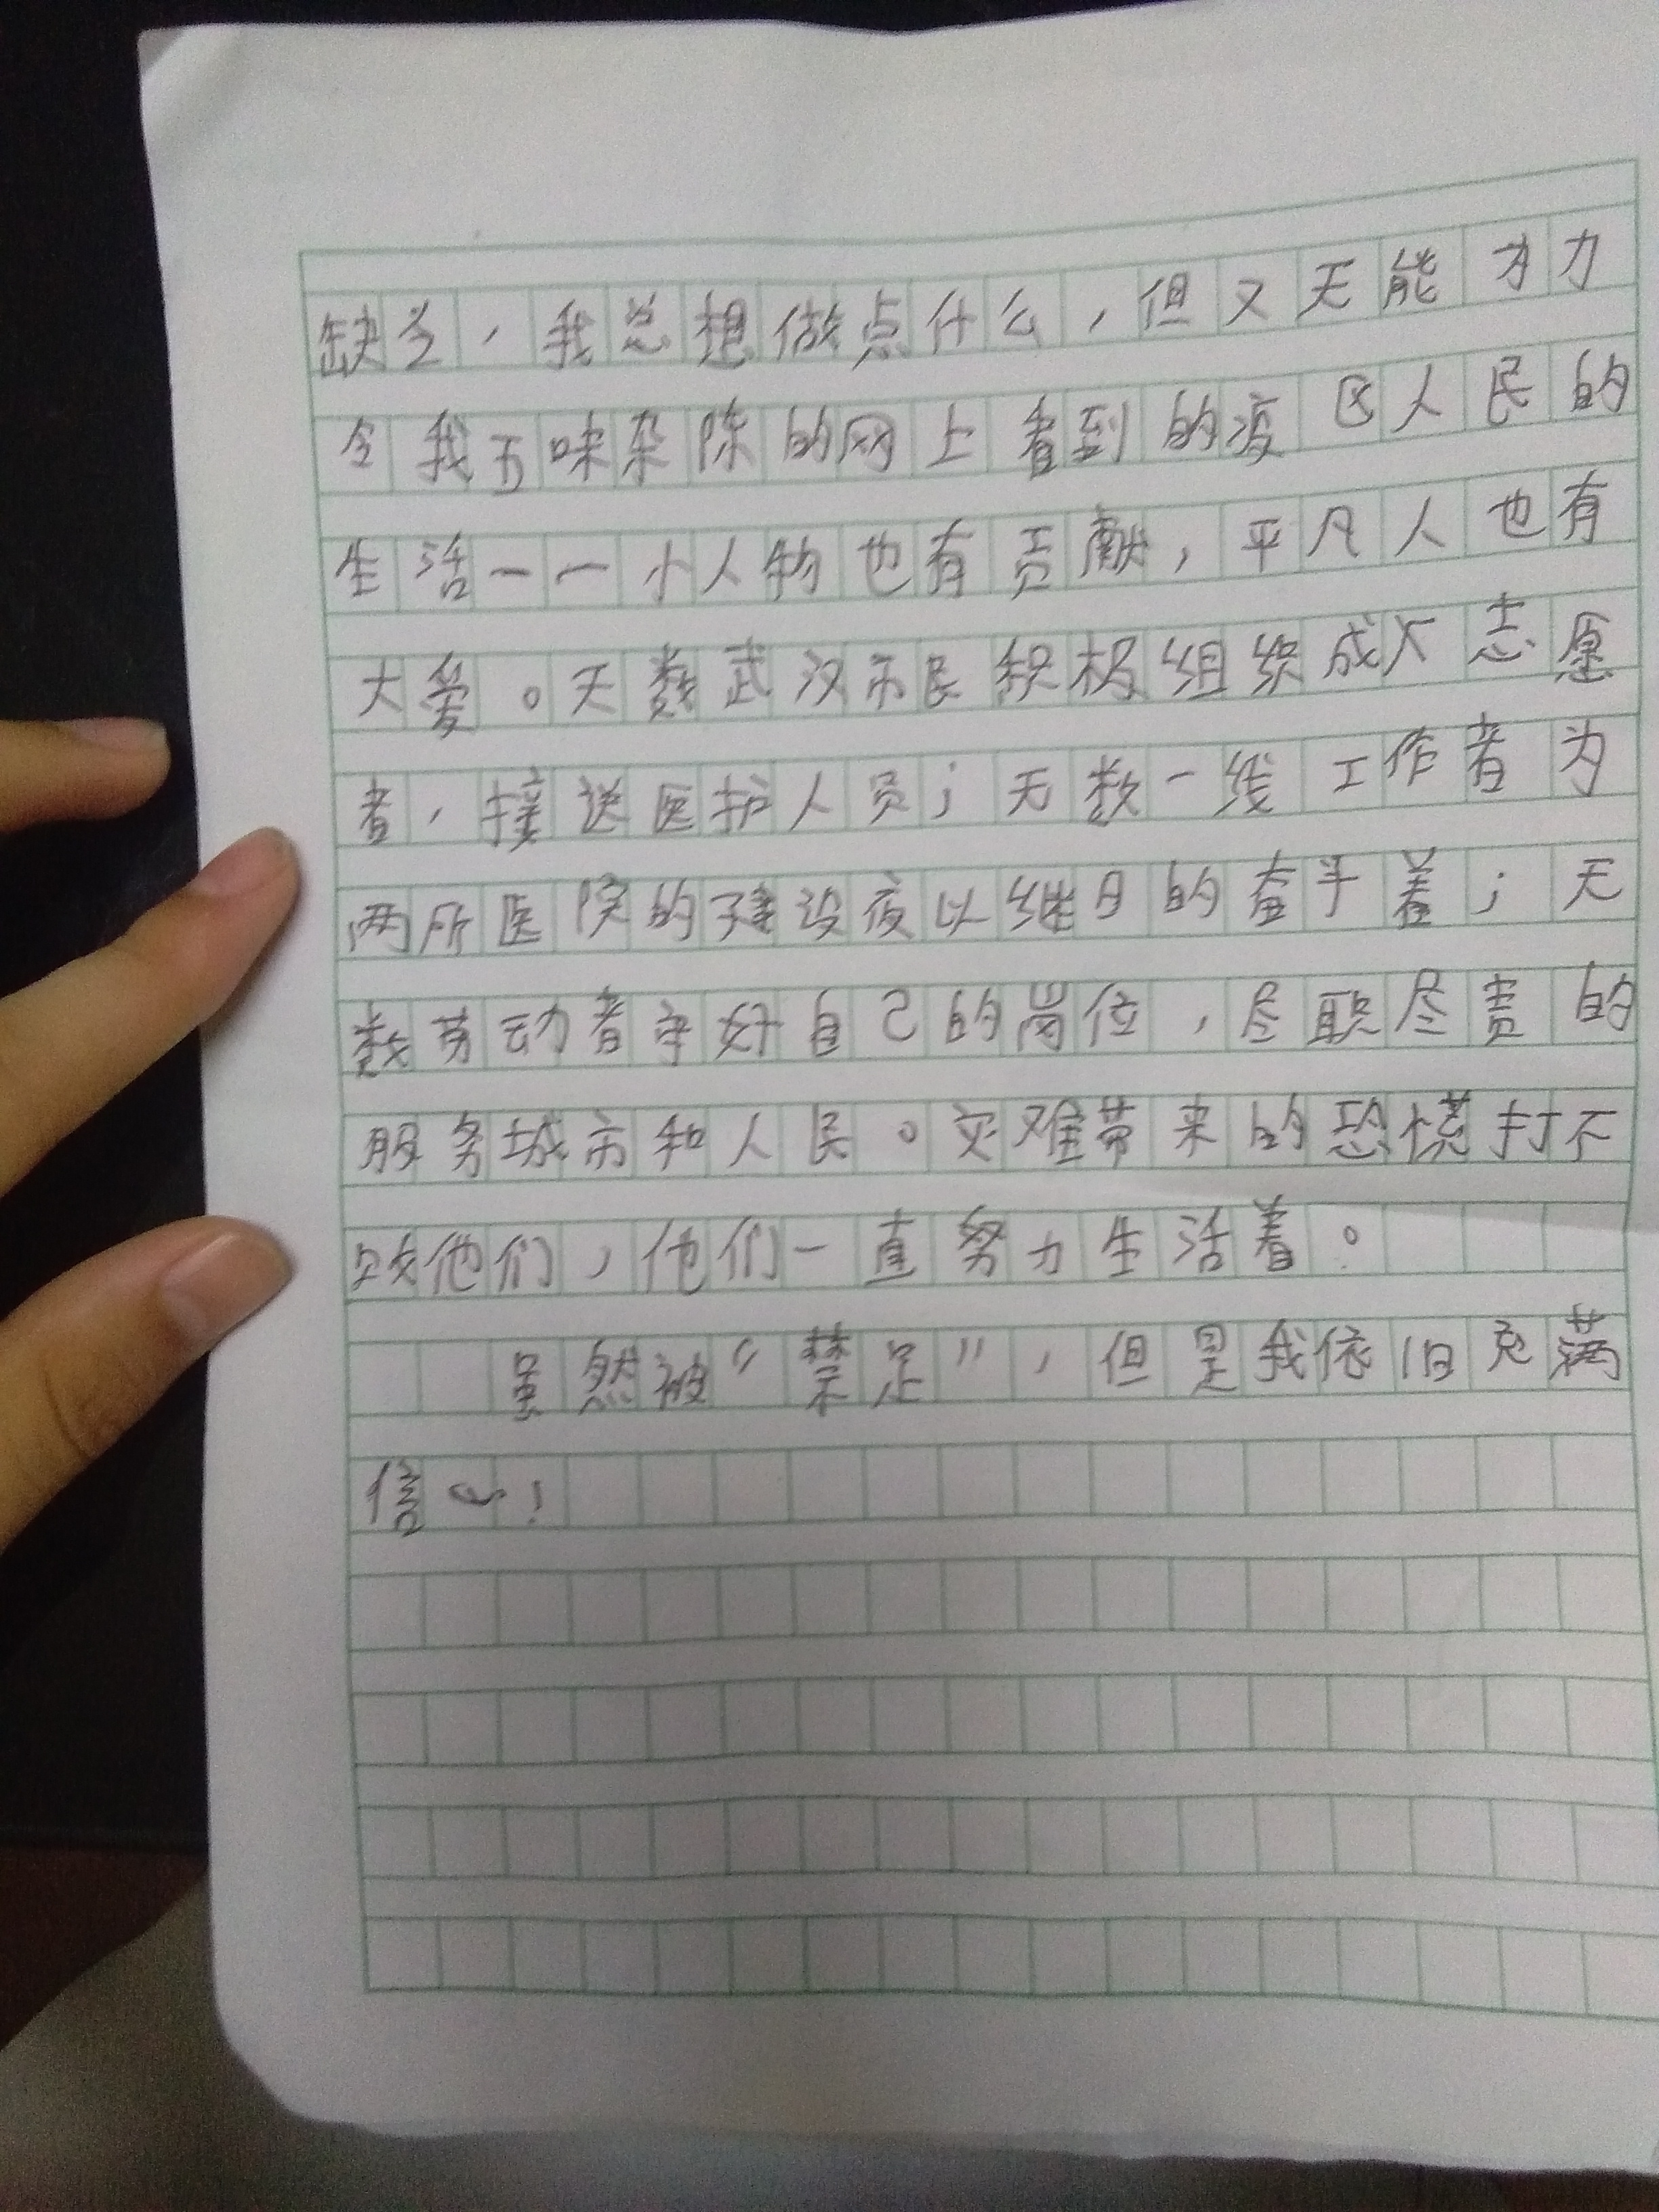 缺乏，我总想做点什么，但又无能为力
令我五味杂陈的网上看到的疫区人民的
生活——小人物也有贡献，平凡人也有
大爱。无数武汉市民积极组织成入志愿
者，接送医护人员；无数一线工作者为
两所医院的建设夜以继日的奋斗着；无
数劳动者守好自己的岗位，尽职尽责的
服务城市和人民。灾难带来的恐慌打不
败他们，他们一直努力生活着。
虽然被“禁足”，但是我依旧充满
信心！